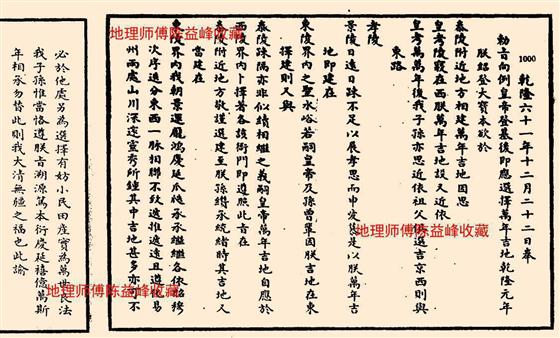 1000
乾隆六十一年十二月二十二日奉
勅旨向例皇帝登基後即應選擇萬年吉地乾隆元年
朕紹登大寶本欲於
泰陵附近地方相建萬年吉地因思
皇考陵寢在西朕萬年吉地設又近依
皇考萬萬年後我子孫亦思近依祖父俱選吉京西則與
東路
孝陵
景陵日遠日疎不足以展孝思而申愛慕是以朕萬年吉
地即建在
東陵界內之聖水峪若嗣皇帝及孫曾輩因朕吉地在東
擇建則又與
泰陵疎隔亦非似續相繼之義嗣皇帝萬年吉地自應於
西陵界內卜擇著各該衙門即遵照此旨在
泰陵附近地方敬謹選建至朕孫纘承統緒時其吉地又
當建在
東陵界內我朝景運龐鴻慶延瓜瓞承承繼繼各依昭穆
次序迭分東西一脉相聯不致遞推遞遠且遵化易
州兩處山川深邃靈秀所鍾其中吉地甚多亦可不
必於他處另為選擇有妨小民田產實為萬世良法
我子孫惟當恪遵朕旨溯源篤本衍慶延禧億萬斯
年相承勿替此則我大清無疆之福也此諭
地理师傅陈益峰收藏
地理师傅陈益峰收藏
地理师傅陈益峰收藏